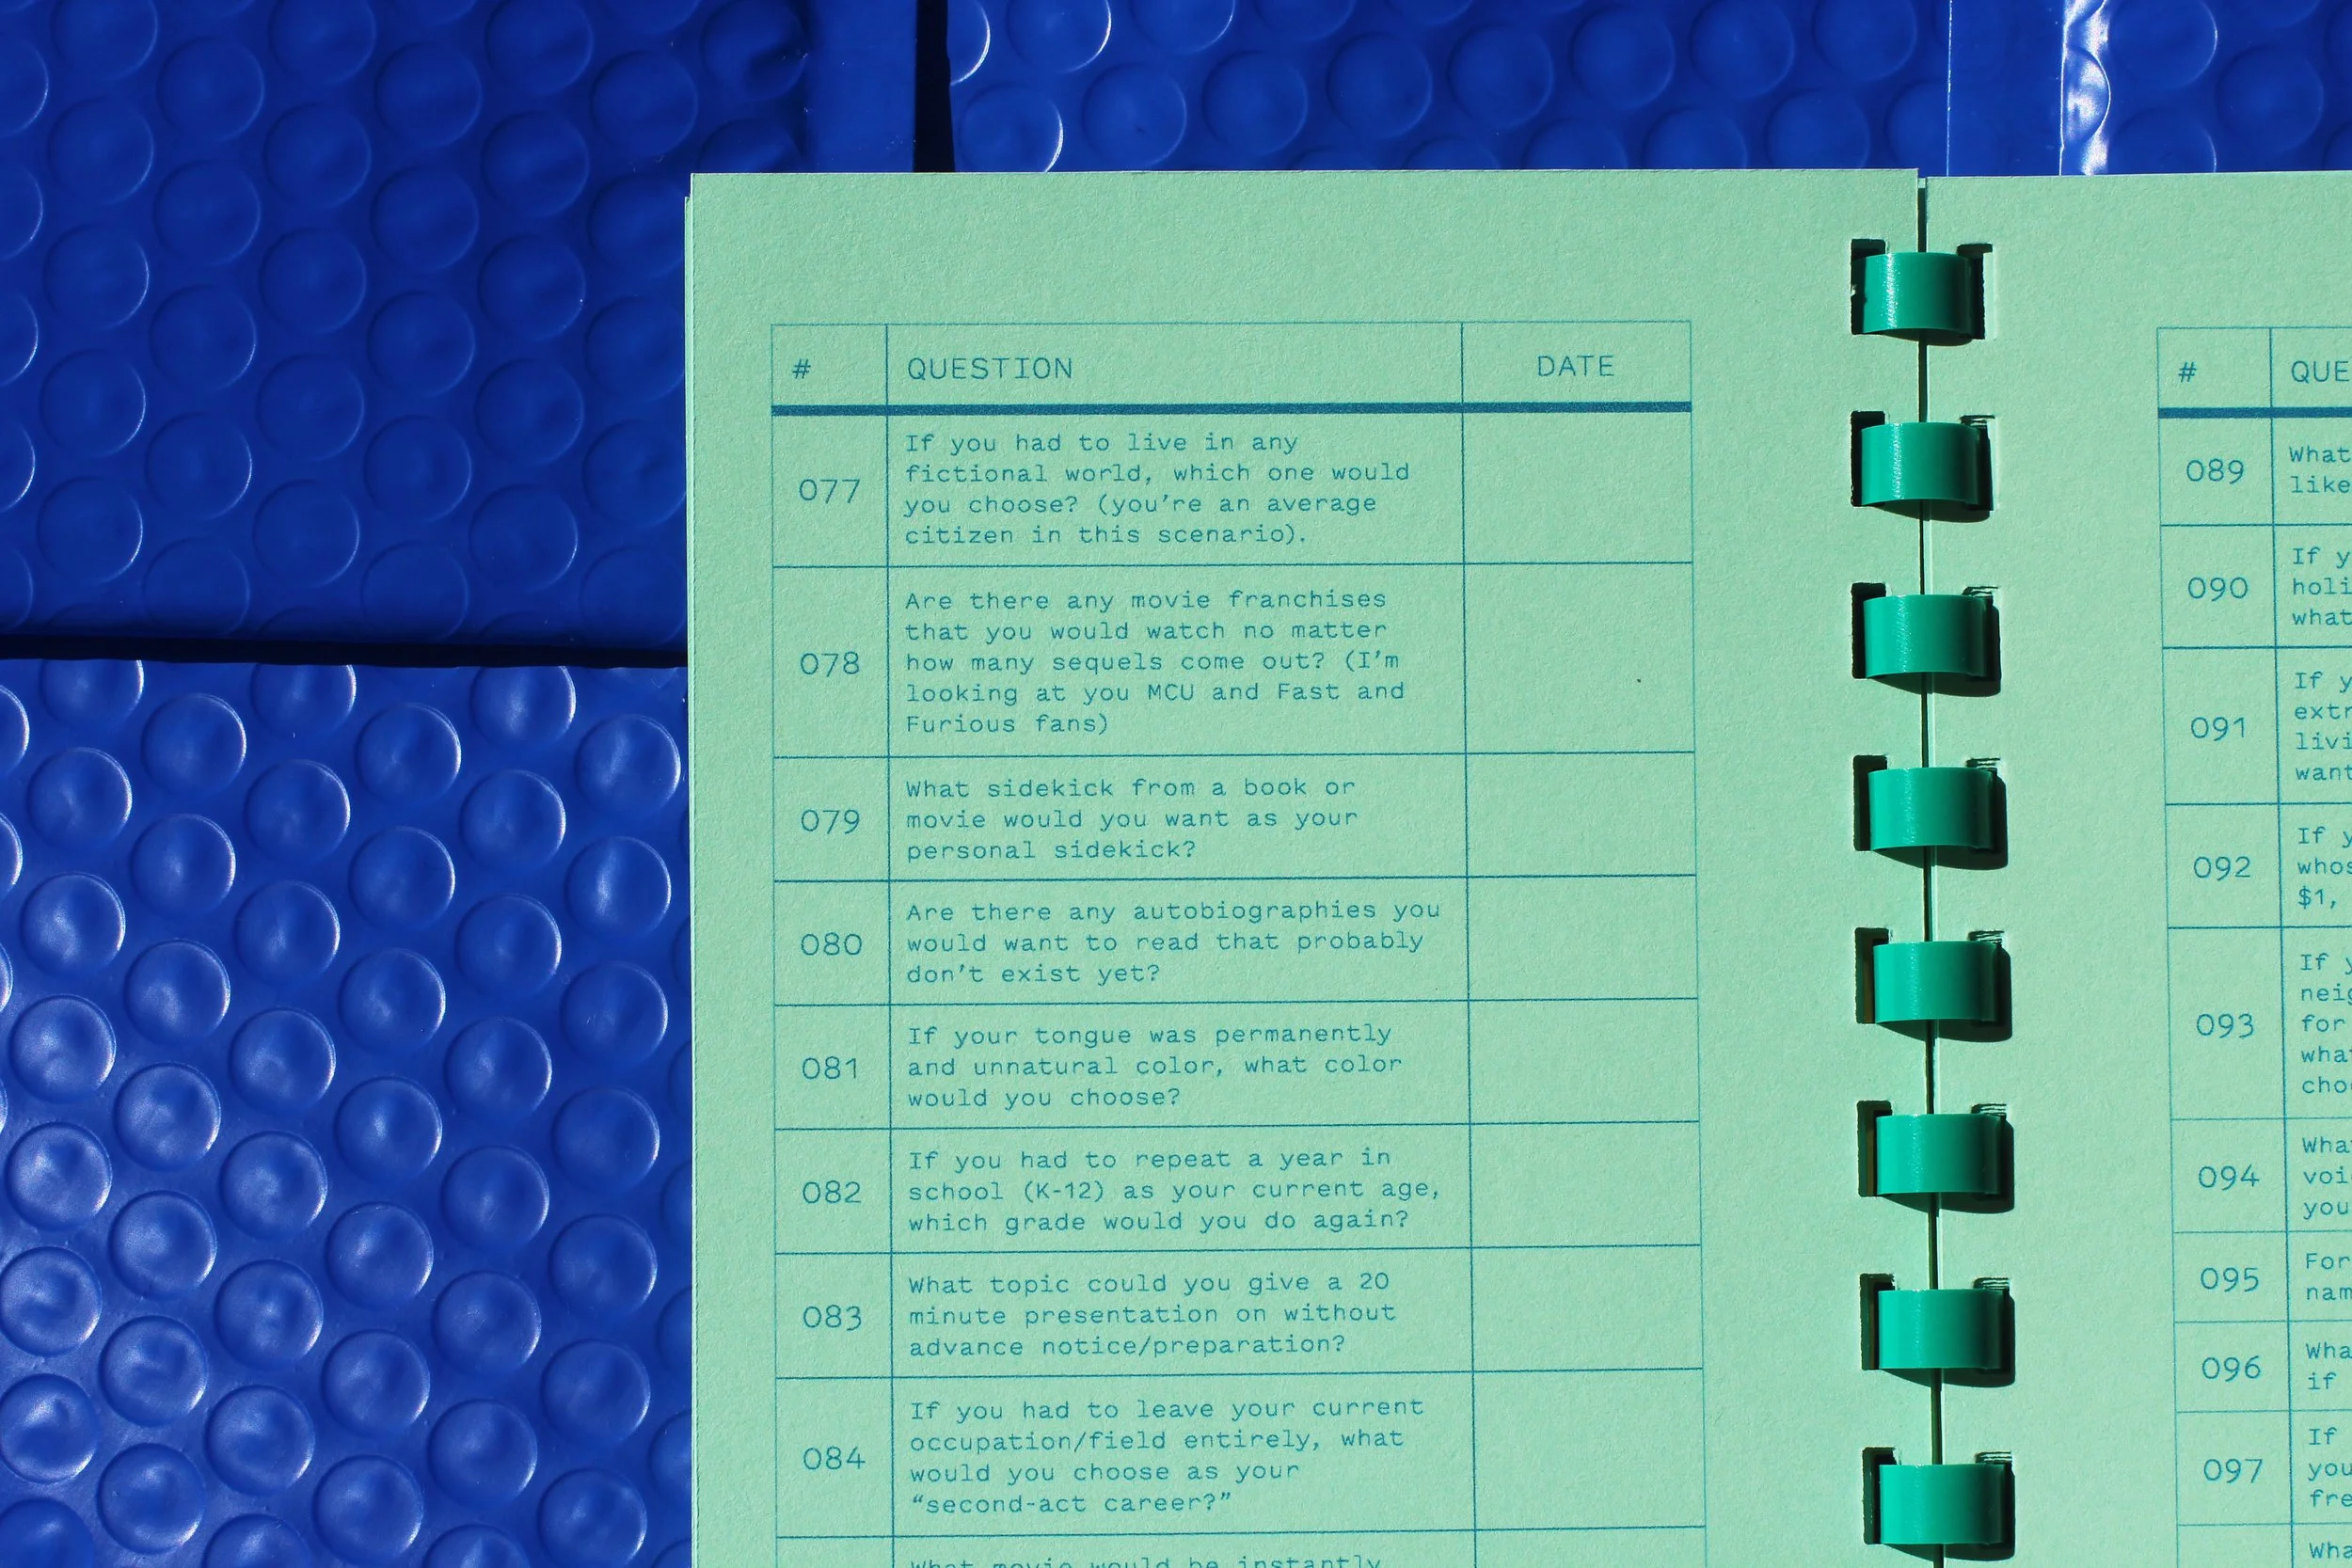 # QUESTION DATE
077
If you had to live in any
fictional world, which one would
you choose? (you're an average
citizen in this scenario).
078
Are there any movie franchises
that you would watch no matter
how many sequels come out? (I'm
looking at you MCU and Fast and
Furious fans)
079
What sidekick from a book or
movie would you want as your
personal sidekick?
080
Are there any autobiographies you
would want to read that probably
don't exist yet?
081
If your tongue was permanently
and unnatural color, what color
would you choose?
082
If you had to repeat a year in
school (K-12) as your current age,
which grade would you do again?
083
What topic could you give a 20
minute presentation on without
advance notice/preparation?
084
If you had to leave your current
occupation/field entirely, what
would you choose as your
“second-act career?”
What movie would be instantly
#
089
What
like
090
If
what
091
If
want
092
If
$1,
093
If
for
094
you
095
For
096
if
097
If